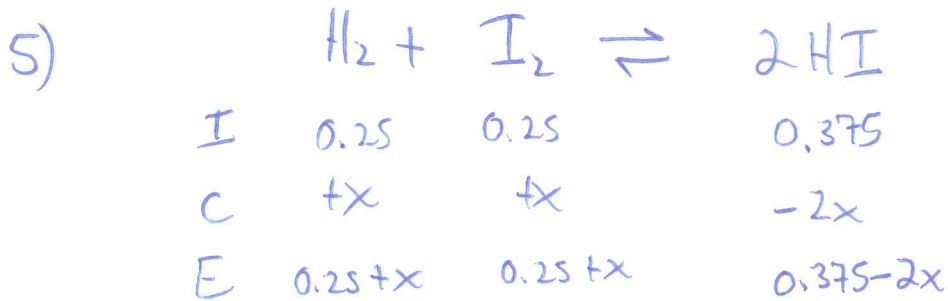 5) H₂ + I₂ ⇌ 2HI
I 0.25 0.25 0.375
C +x +x -2x
E 0.25+x 0.25+x 0.375-2x